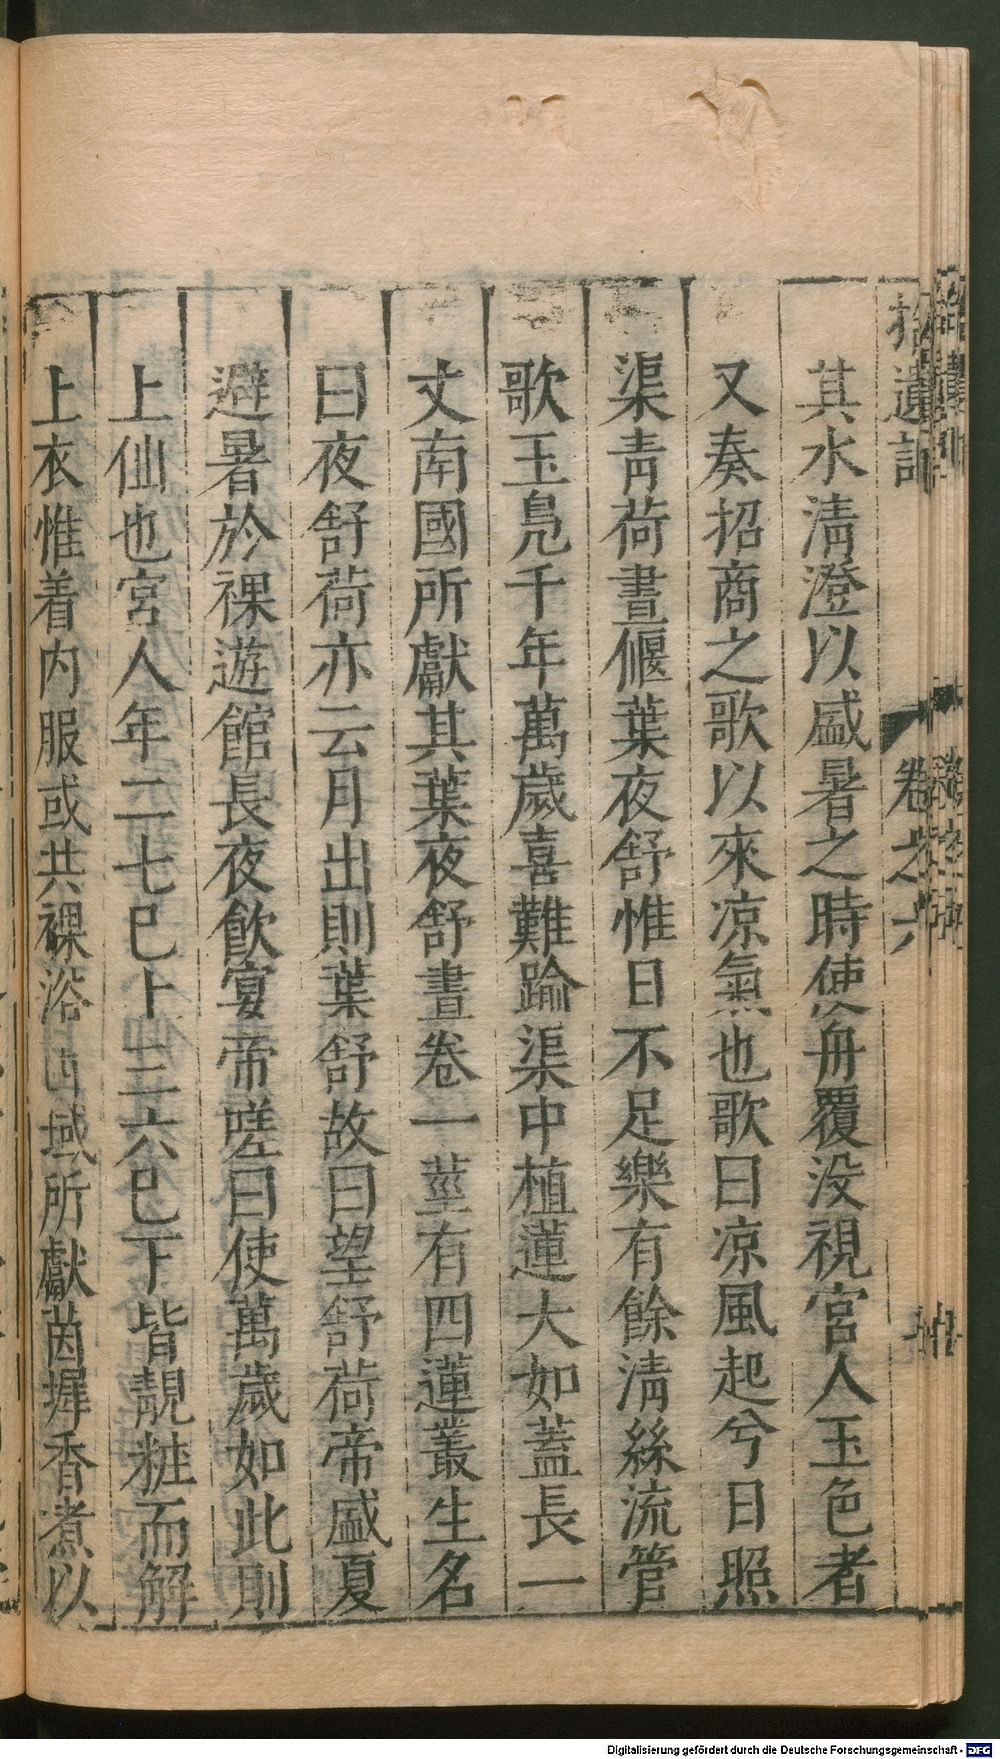 拾遺記
卷之六
其水淸澄以盛暑之時使舟覆没視宮人玉色者
又奏招商之歌以來凉氣也歌曰凉風起兮日照
渠靑荷晝偃葉夜舒惟日不足樂有餘淸絲流管
歌玉鳧千年萬歲喜難踰渠中植蓮大如蓋長一
丈南國所獻其葉夜舒晝卷一莖有四蓮叢生名
曰夜舒荷亦云月出則葉舒故曰望舒荷帝盛夏
避暑於裸遊館長夜飲宴帝嗟曰使萬歲如此則
上仙也宮人年二七巳上三六巳下皆靚粧而解
上衣惟着内服或共裸浴西域所獻茵墀香煮以
Digitalisierung gefördert durch die Deutsche Forschungsgemeinschaft - DFG